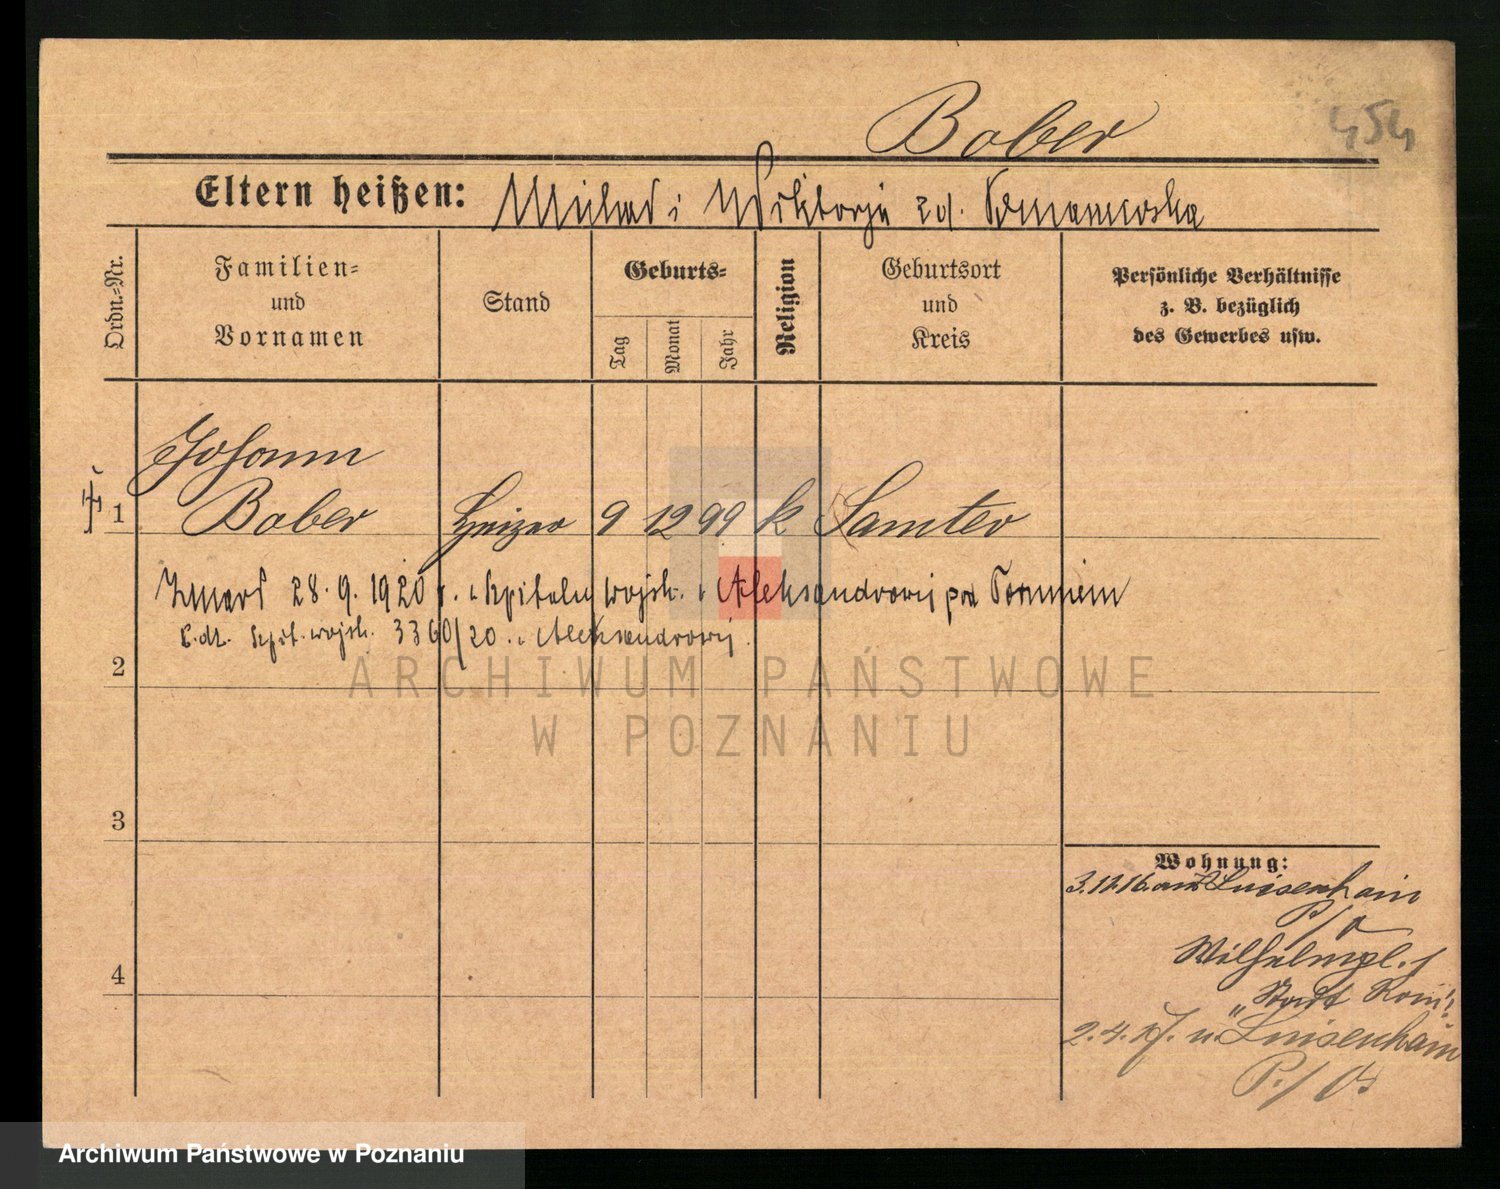 Bober
454
Eltern heißen: Michał i Wiktorja zd. Tomanowska
Ordn.=Nr.
Familien=
und
Vornamen
Stand
Geburts=
Tag
Monat
Jahr
Religion
Geburtsort
und
Kreis
Persönliche Verhältnisse
z. B. bezüglich
des Gewerbes usw.
Johann
1 Bober Heizer 9 12 99 k Samter
Zmarł 28.9.1920 r. w szpitalu wojsk. w Aleksandrowij pod Toruniem
szpit. wojsk. 3360/20 w Aleksandrowij.
2
3
4
Wohnung:
3.12.16. aus Luisenhain
P/O
Wilhelmpl. 1
"Stadt Rom"
2.4.17. n. Luisenhain
P./O
ARCHIWUM PAŃSTWOWE
W POZNANIU
Archiwum Państwowe w Poznaniu